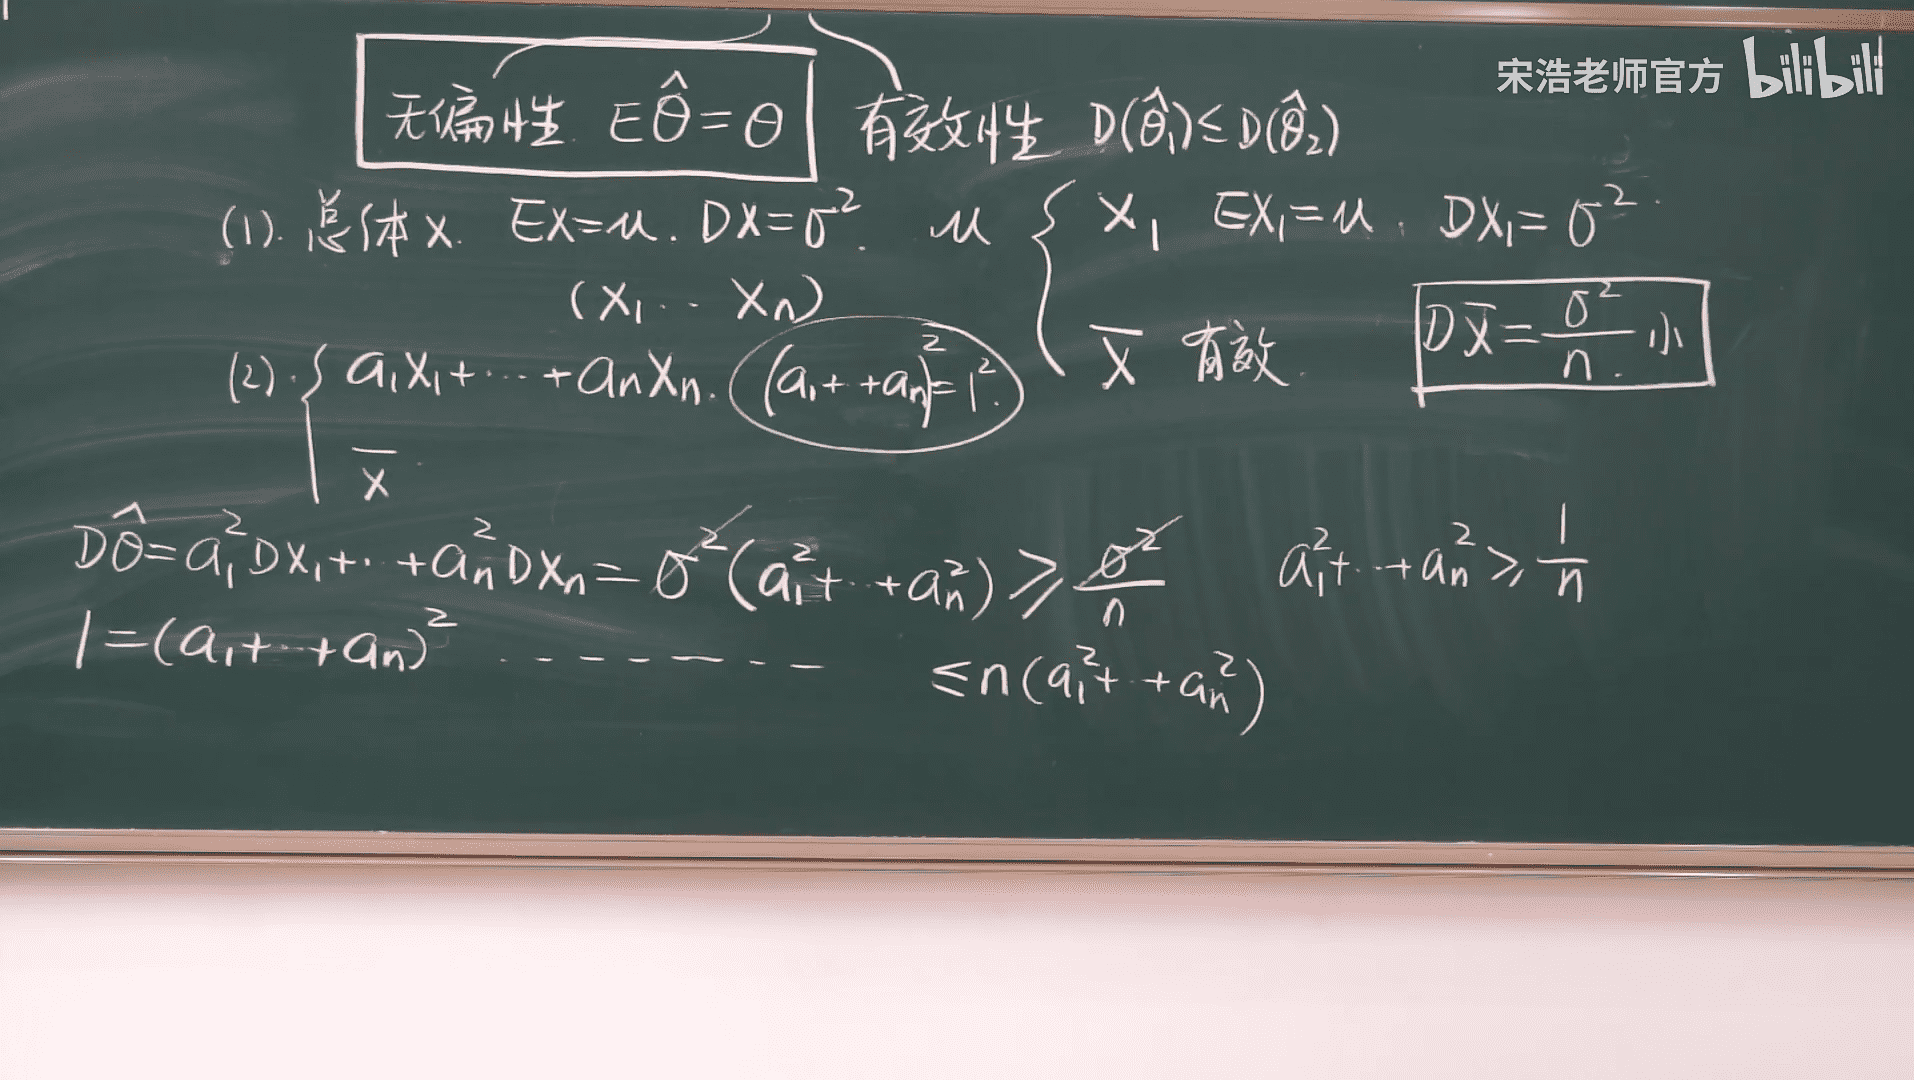 宋浩老师官方 bilibili
无偏性. Eθ̂=θ 有效性 D(θ̂₁)≤D(θ̂₂)
(1). 总体X. EX=μ. DX=σ². μ { X₁ EX₁=μ. DX₁=σ².
(X₁ ·· Xn)
X̄ 有效. DX̄=σ²/n. 小
(2). { a₁X₁+···+anXn. (a₁+ +an)²=1².
X̄.
Dθ̂=a₁²DX₁+··+an²DXn=σ²(a₁²+··+an²)≥σ²/n a₁²+··+an²≥1/n
1=(a₁+··+an)² -------- ≤n(a₁²+··+an²)